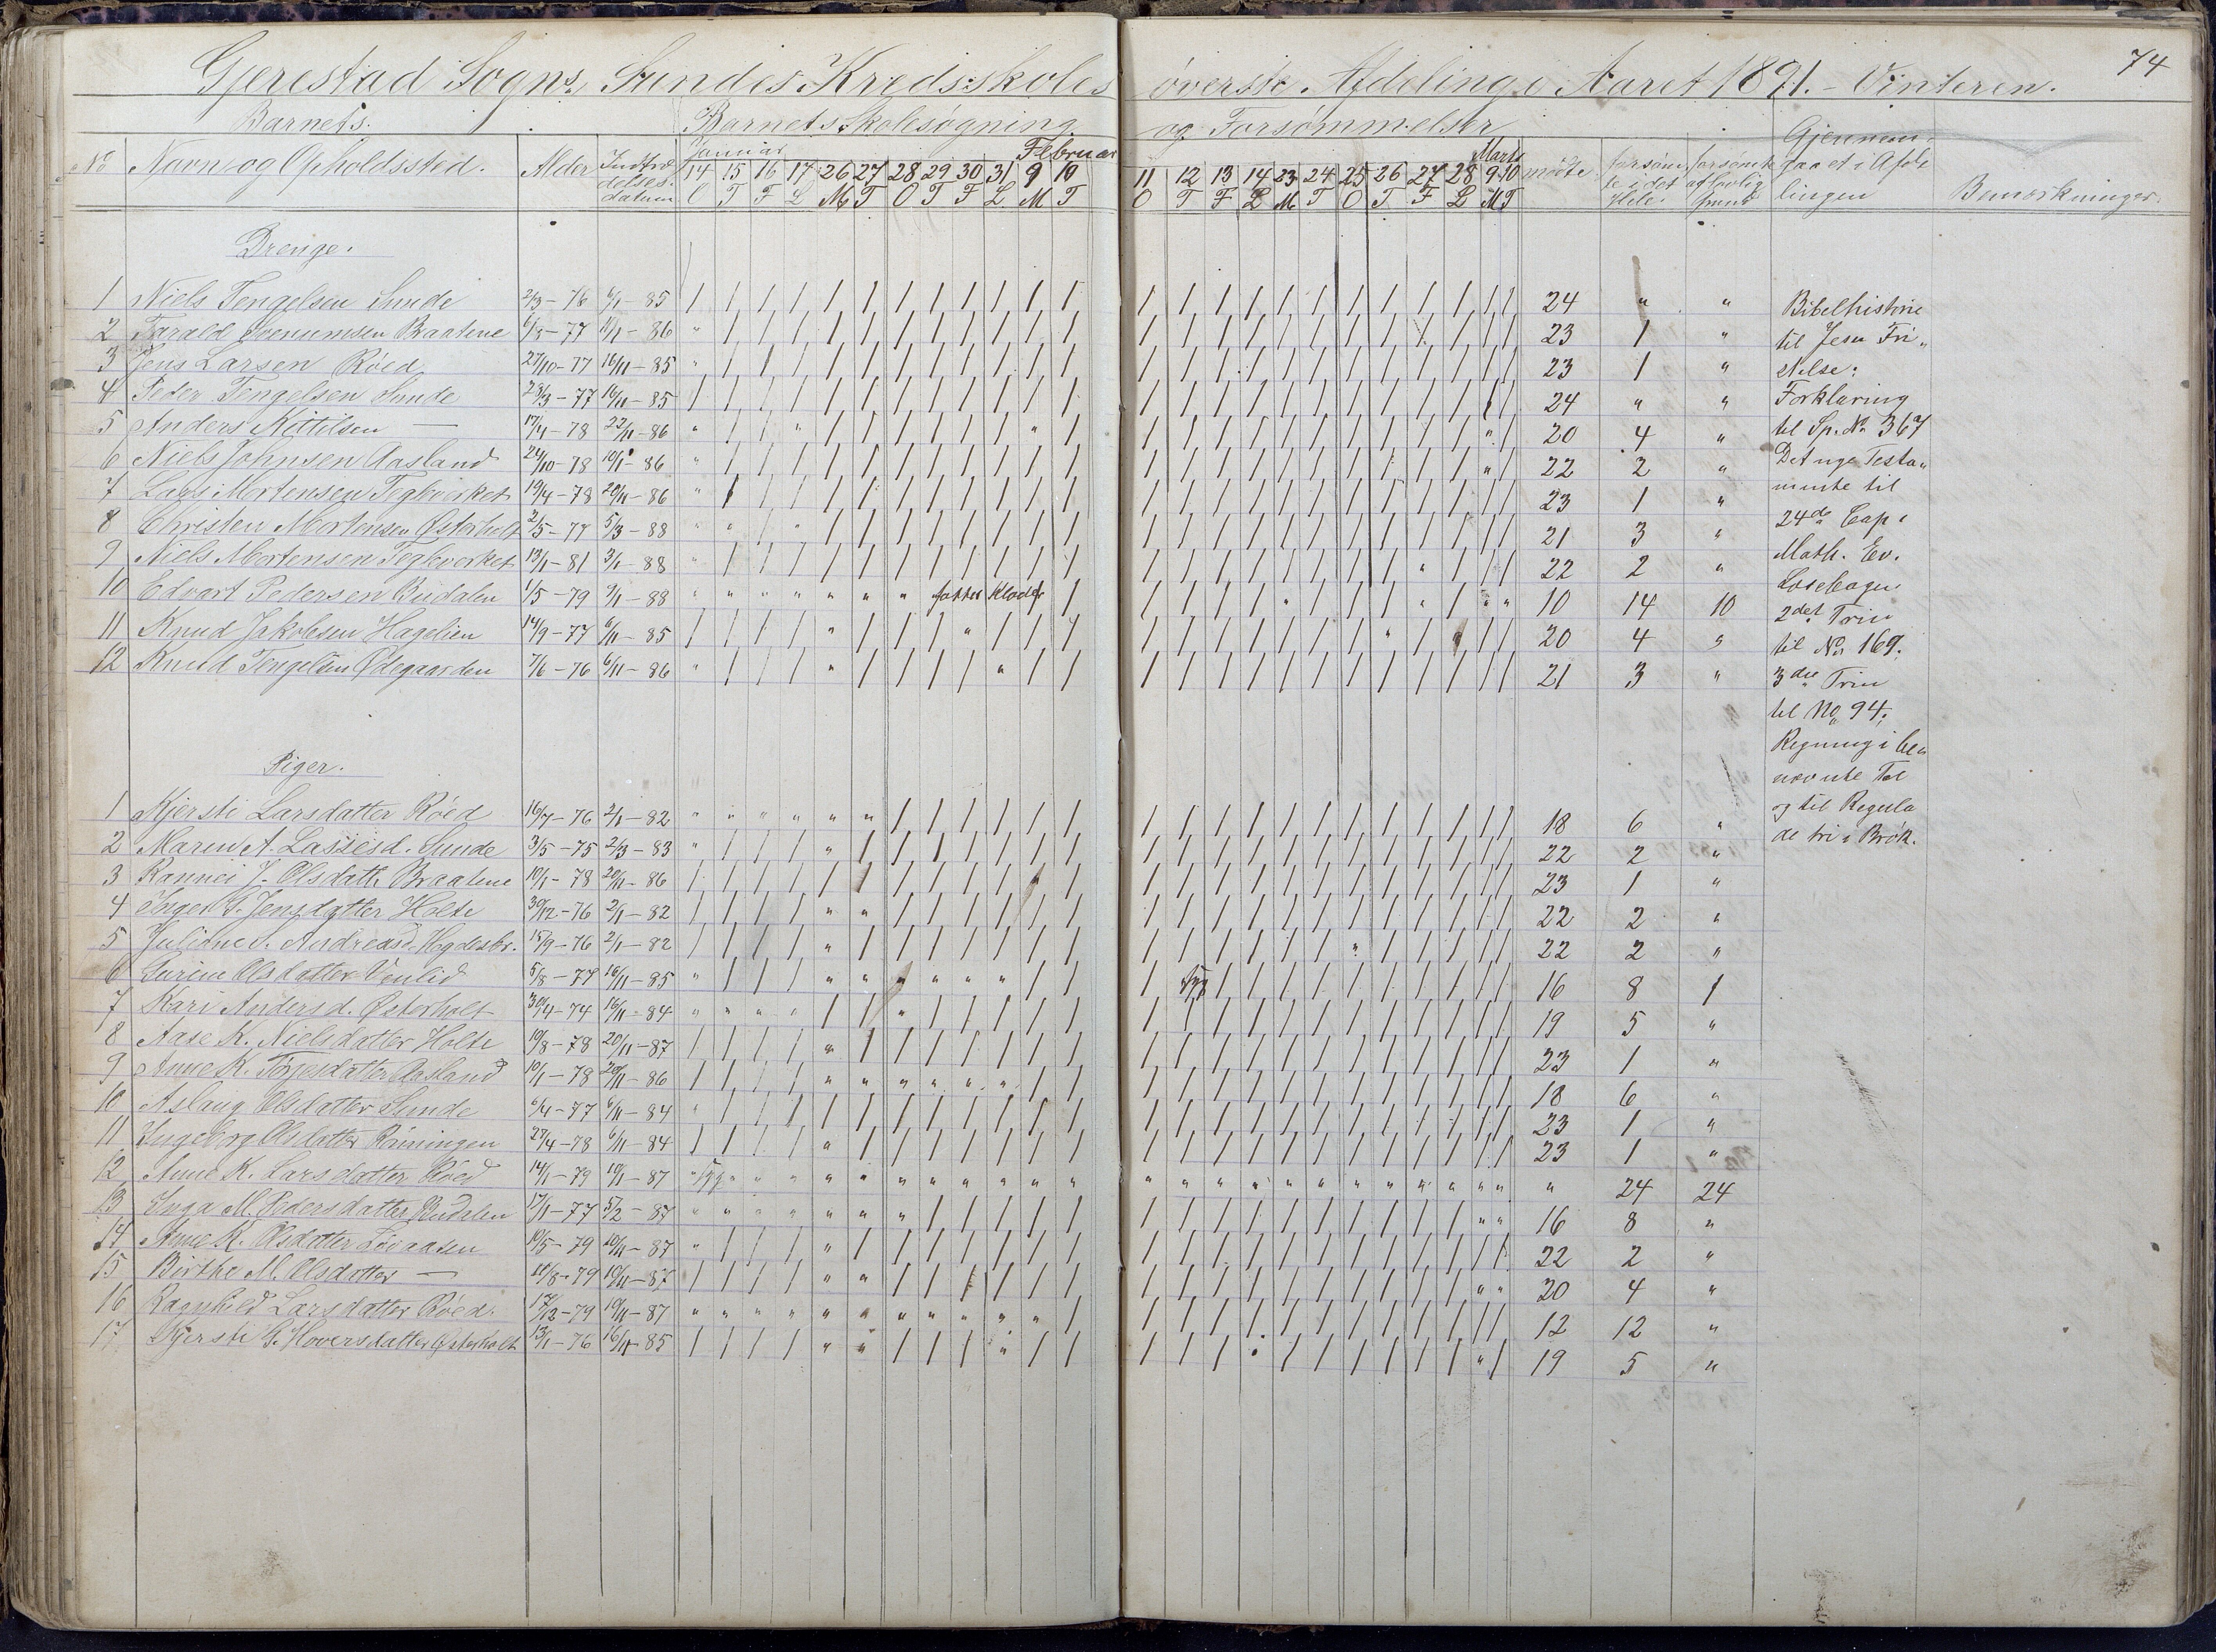 74
Gjerestad Sogns Sundes Kredsskoles øverste Afdeling i Aaret 1891. - Vinteren.
Barnets. Barnets Skolesøgning og Forsømmelser
No Navn og Opholdssted. Alder Indtrædelsesdatum Januar Februar Marts mødte forsømte i det Hele forsømte af lovlig Grund Gjennemgaaet i Afdelingen Bemærkninger
14 15 16 17 26 27 28 29 30 31 9 10 11 12 13 14 23 24 25 26 27 28 9 10
O T F L M T O T F L M T O T F L M T O T F L M T
Drenge.
1 Niels Tengelsen Sunde 2/3-76 6/1-85 24 " "
2 Tarald Braatene 6/8-77 11/1-86 23 1 "
3 Jens Larsen Røed 27/10-77 16/11-85 23 1 "
4 Peder Tengelsen Sunde 23/3-77 16/11-85 24 " "
5 Anders Kittilsen — 17/4-78 22/11-86 20 4 "
6 Niels Johnsen Aasland 24/10-78 10/1-86 22 2 "
7 Lars Mortensen Teglverket 19/4-78 20/11-86 23 1 "
8 Christen Mortensen Østerholt 2/5-77 5/3-88 21 3 "
9 Niels Mortensen Teglverket 13/1-81 3/1-88 22 2 "
10 Edvart Pedersen Budalen 1/5-79 9/1-88 fatter Klæder 10 14 10
11 Knud Jakobsen Hagelien 14/9-77 6/11-85 20 4 "
12 Knud Tengelsen Ødegaarden 7/6-76 6/11-86 21 3 "
Piger.
1 Kjersti Larsdatter Røed 16/7-76 2/1-82 18 6 "
2 Maren A. Lassesd. Sunde 3/5-75 2/3-83 22 2 "
3 Rannei J. Olsdatt. Braatene 10/1-78 20/11-86 23 1 "
4 Inger G. Jensdatter Holte 30/12-76 2/1-82 22 2 "
5 15/9-76 2/1-82 22 2 "
6 Olsdatter Venlid 5/8-77 16/11-85 syg 16 8 1
7 Kari Andersd. Østerholt 30/4-74 16/11-84 19 5 "
8 Aase K. Nielsdatter Holte 19/8-78 20/11-87 23 1 "
9 Anne K. Tørjesdatter Aasland 10/1-78 20/11-86 18 6 "
10 Aslaug Olsdatter Sunde 6/4-77 6/11-84 23 1 "
11 Ingeborg Olsdatter 27/4-78 6/11-84 23 1 "
12 Anne K. Larsdatter Røed 14/1-79 19/1-87 syg " 24 24
13 Inga M. Pedersdatter Budalen 17/1-77 5/2-87 16 8 "
14 Anne K. Olsdatter Løvaasen 10/5-79 10/11-87 22 2 "
15 Birthe M. Olsdatter — 11/8-79 19/11-87 20 4 "
16 Ragnhild Larsdatter Røed. 17/12-79 19/11-87 12 12 "
17 Kjersti G. Hoversdatter Østerholt 13/1-76 16/11-85 19 5 "
Bibelhistorie
til Jesu Fri„
stelse:
Forklaring
til Sp. No 367
Det nye Testa„
mente til
24de Cap i
Math. Ev.
Læsebogen
2det Trin
til No 169.
3die Trin
til No 94.
Regning i be„
nævnte Tal
og til Regula
de tri i Brøk.